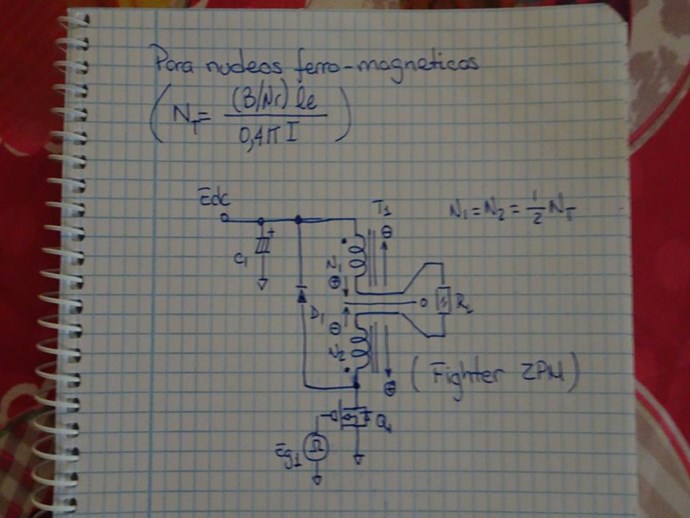 Para nucleos ferro-magneticos
(N_T = (B/Nr) le / 0,4π I)
Edc
T1
N1 = N2 = 1/2 N_T
+
C1
N1
Φ
Φ
D1
Φ
N2
Φ
(Fighter ZPM)
Q1
Eg1